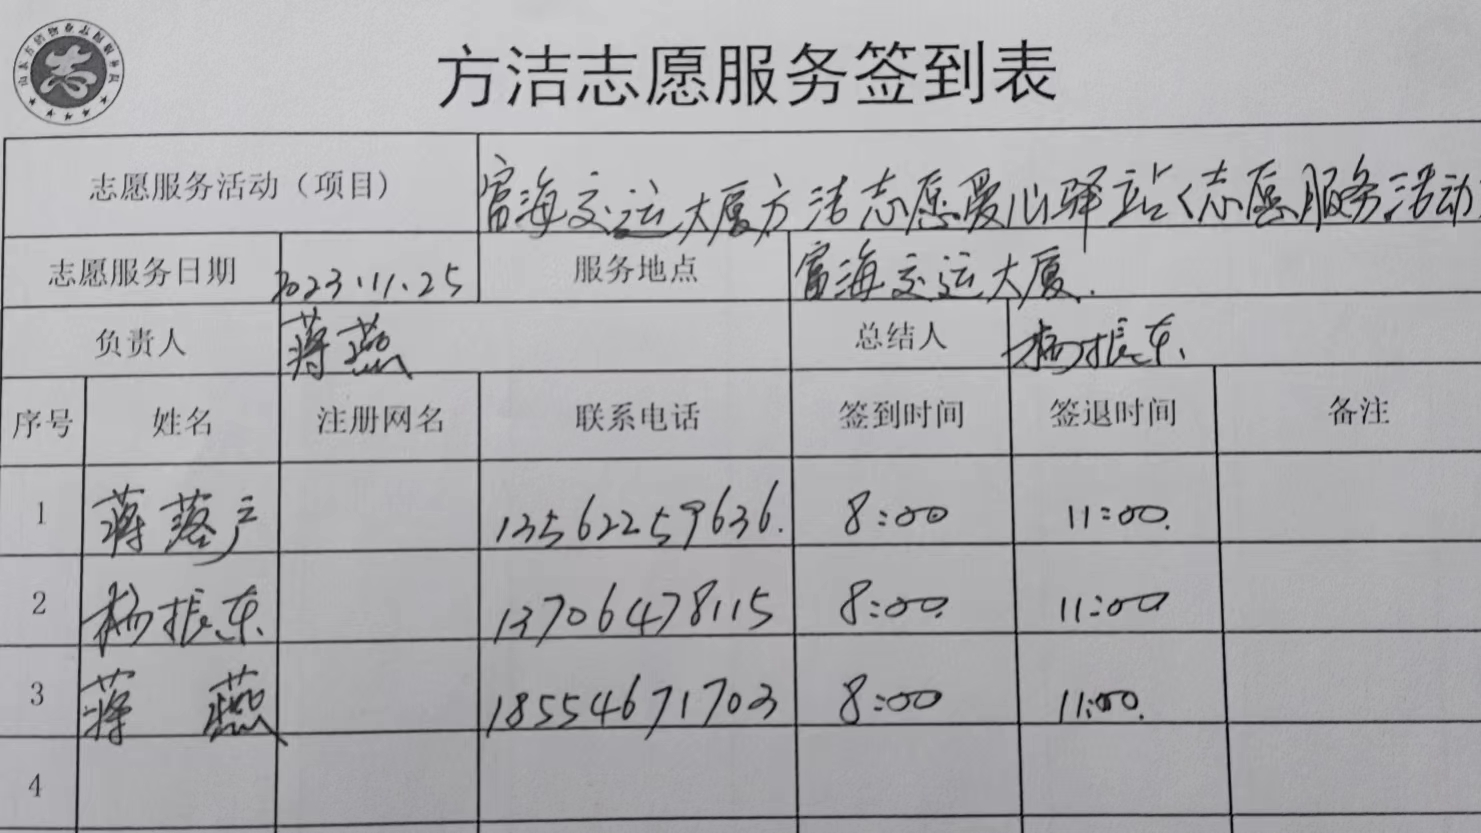 方洁志愿服务签到表
志愿服务活动（项目） 富海交运大厦方洁志愿爱心驿站《志愿服务活动
志愿服务日期 2023.11.25 服务地点 富海交运大厦.
负责人 蒋燕 总结人 杨振东
序号 姓名 注册网名 联系电话 签到时间 签退时间 备注
1 蒋落户 13562259636. 8:00 11:00.
2 杨振东 13706478115 8:00 11:00
3 蒋燕 18554671703 8:00 11:00.
4